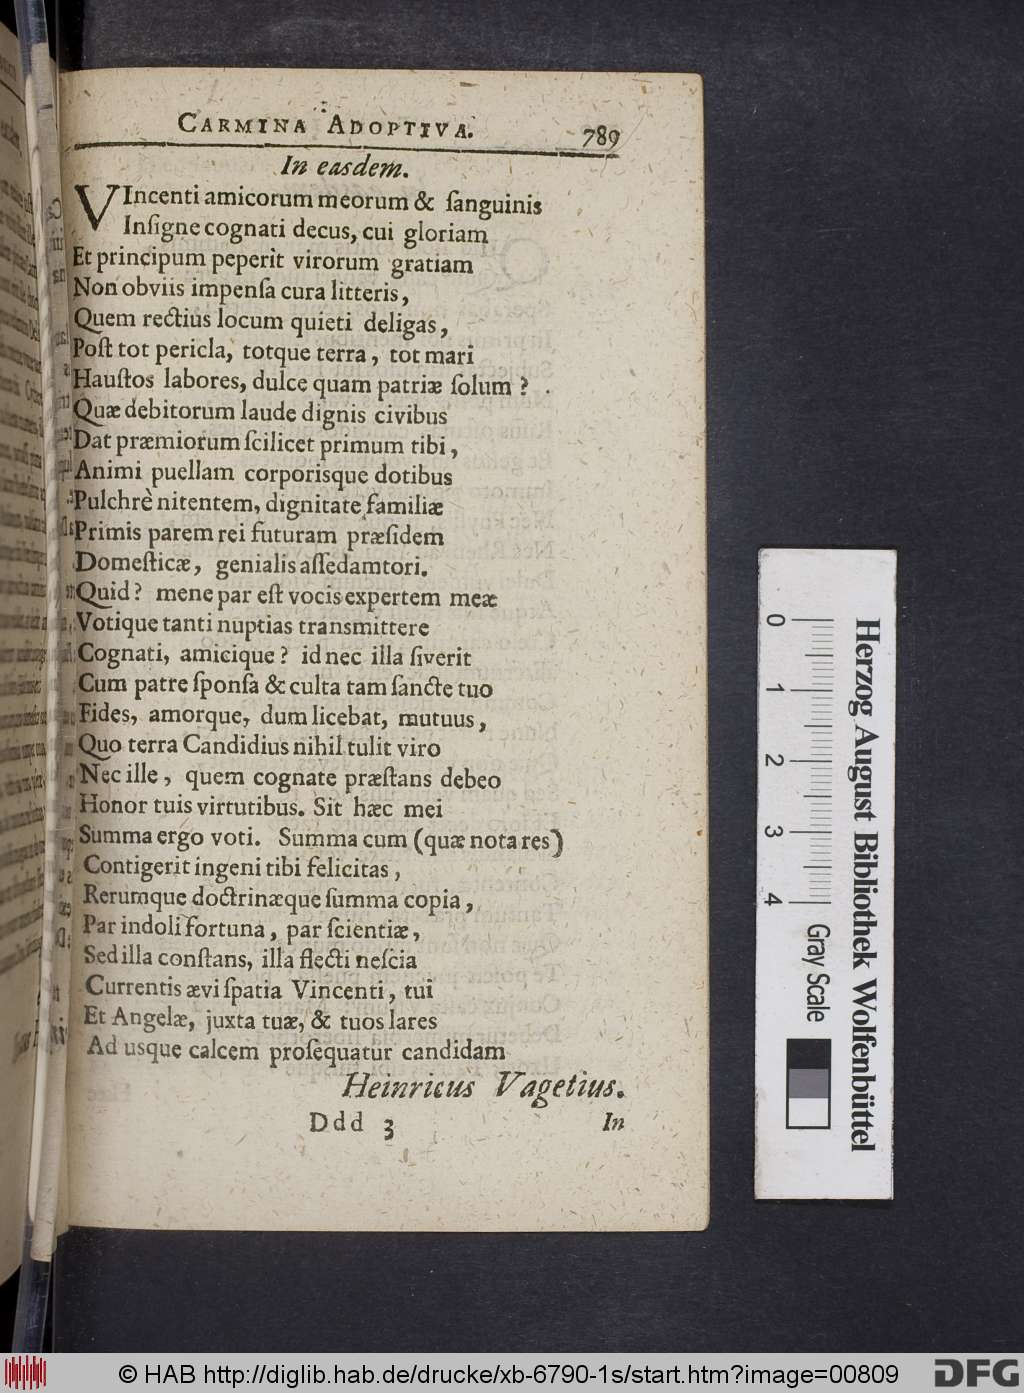 CARMINA ADOPTIVA. 789
In easdem.
VIncenti amicorum meorum & ſanguinis
Inſigne cognati decus, cui gloriam
Et principum peperit virorum gratiam
Non obviis impenſa cura litteris,
Quem rectius locum quieti deligas,
Poſt tot pericla, totque terra, tot mari
Hauſtos labores, dulce quam patriæ ſolum ?
Quæ debitorum laude dignis civibus
Dat præmiorum ſcilicet primum tibi,
Animi puellam corporisque dotibus
Pulchrè nitentem, dignitate familiæ
Primis parem rei futuram præſidem
Domeſticæ, genialis aſſedamtori.
Quid? mene par eſt vocis expertem meæ
Votique tanti nuptias transmittere
Cognati, amicique? id nec illa ſiverit
Cum patre ſponſa & culta tam ſancte tuo
Fides, amorque, dum licebat, mutuus,
Quo terra Candidius nihil tulit viro
Nec ille, quem cognate præſtans debeo
Honor tuis virtutibus. Sit hæc mei
Summa ergo voti. Summa cum (quæ nota res)
Contigerit ingeni tibi felicitas,
Rerumque doctrinæque ſumma copia,
Par indoli fortuna, par ſcientiæ,
Sed illa conſtans, illa flecti neſcia
Currentis ævi ſpatia Vincenti, tui
Et Angelæ, juxta tuæ, & tuos lares
Ad usque calcem proſequatur candidam
Heinricus Vagetius.
Ddd 3 In
0 1 2 3 4 Gray Scale
Herzog August Bibliothek Wolfenbüttel
© HAB http://diglib.hab.de/drucke/xb-6790-1s/start.htm?image=00809 DFG